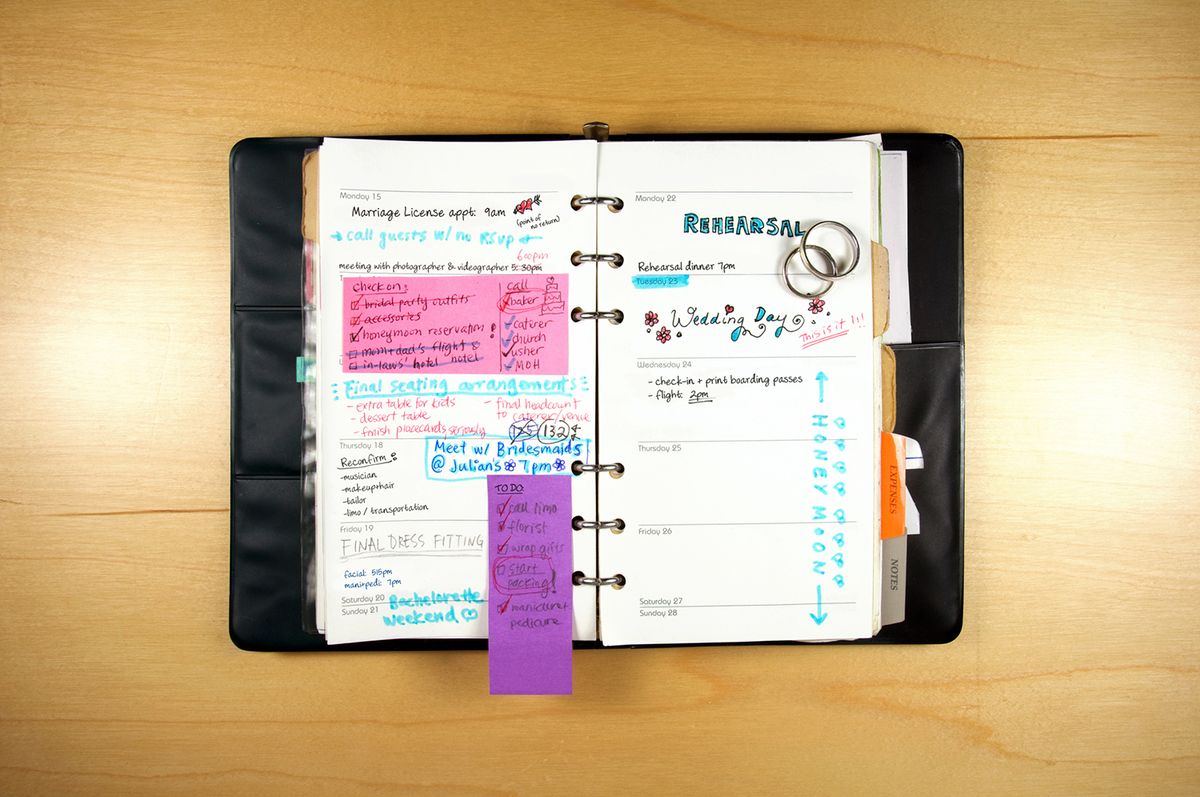 Monday 15
Marriage License appt: 9am
(point of
no return)
call guests w/ no RSVP
6:00pm
meeting with photographer & videographer 5:30pm
T
check on:
bridal party outfits
accessories
honeymoon reservation!
mom+dad's flight &
in-laws' hotel hotel
call
baker
caterer
church
usher
MOH
Final seating arrangements
- extra table for kids
- dessert table
- finish placecards seriously
- final headcount
to caterer/venue
125 132
Thursday 18
Reconfirm:
-musician
-makeup+hair
-tailor
-limo / transportation
Meet w/ Bridesmaids
@ Julian's 7pm
Friday 19
FINAL DRESS FITTING
facial: 515pm
mani+pedi: 7pm
Saturday 20
Sunday 21
Bachelorette
Weekend
TO DO:
call limo
florist
wrap gifts
start
packing!
manicure+
pedicure
Monday 22
REHEARSAL
Rehearsal dinner 7pm
Tuesday 23
Wedding Day
This is it!!!
Wednesday 24
- check-in + print boarding passes
- flight: 2pm
Thursday 25
Friday 26
Saturday 27
Sunday 28
HONEYMOON
EXPENSES
NOTES